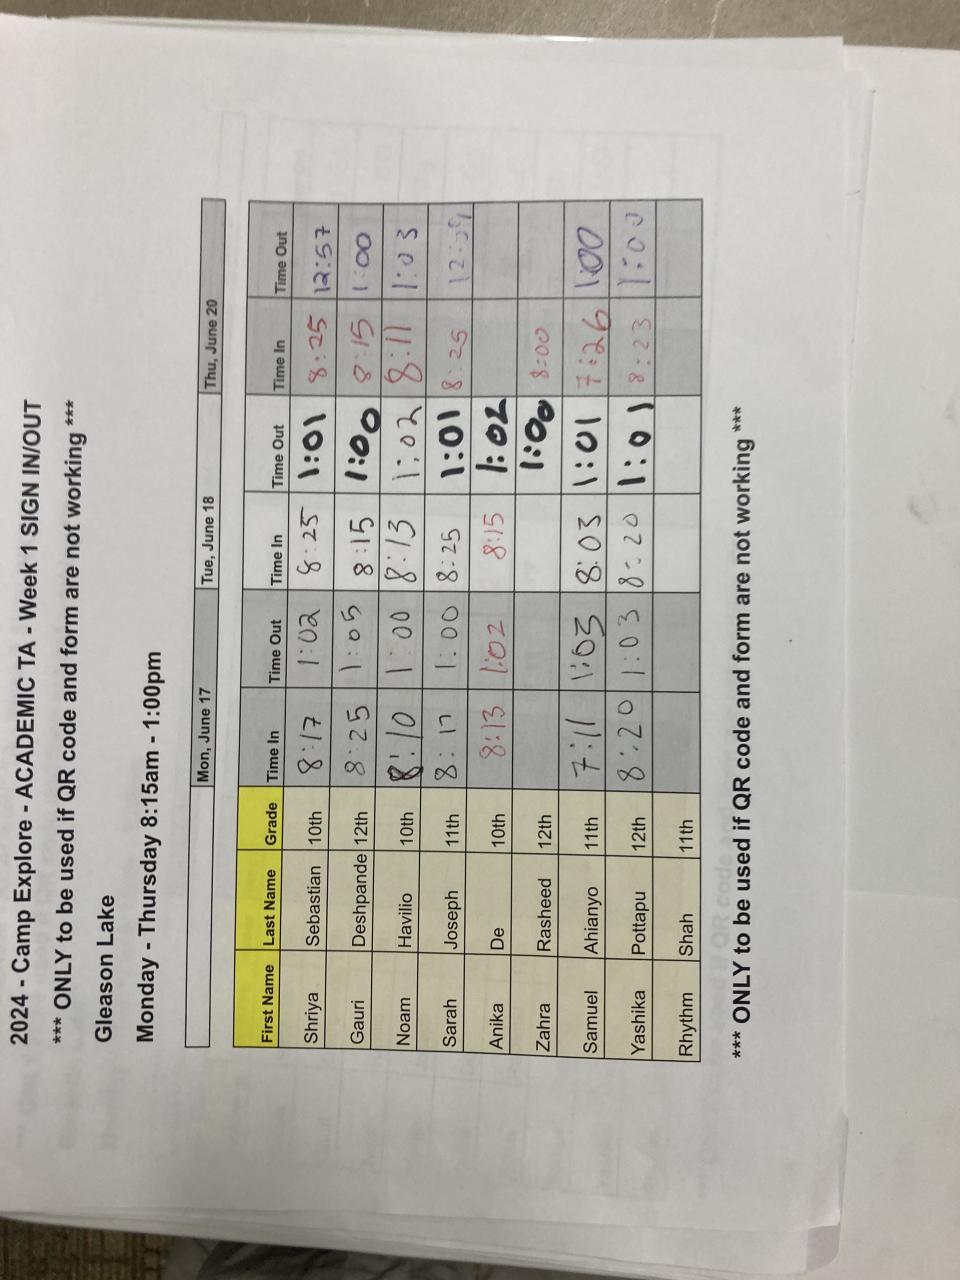 2024 - Camp Explore - ACADEMIC TA - Week 1 SIGN IN/OUT
*** ONLY to be used if QR code and form are not working ***
Gleason Lake
Monday - Thursday 8:15am - 1:00pm
Mon, June 17 Tue, June 18 Thu, June 20
First Name Last Name Grade Time In Time Out Time In Time Out Time In Time Out
Shriya Sebastian 10th 8:17 1:02 8:25 1:01 8:25 12:57
Gauri Deshpande 12th 8:25 1:05 8:15 1:00 8:15 1:00
Noam Havilio 10th 8:10 1:00 8:13 1:02 8:11 1:03
Sarah Joseph 11th 8:17 1:00 8:25 1:01 8:25
Anika De 10th 8:13 1:02 8:15 1:02
Zahra Rasheed 12th 1:00 8:00
Samuel Ahianyo 11th 7:11 1:03 8:03 1:01 7:26 1:00
Yashika Pottapu 12th 8:20 1:03 8:20 1:01 8:23 1:00
Rhythm Shah 11th
*** ONLY to be used if QR code and form are not working ***